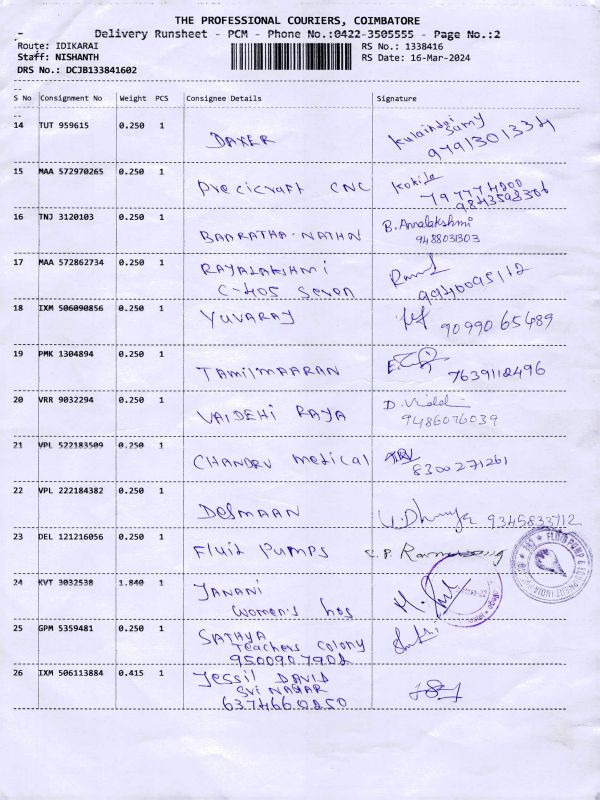 THE PROFESSIONAL COURIERS, COIMBATORE
Delivery Runsheet - PCM - Phone No.:0422-3505555 - Page No.:2
Route: IDIKARAI RS No.: 1338416
Staff: NISHANTH RS Date: 16-Mar-2024
DRS No.: DCJB133841602
S No Consignment No Weight PCS Consignee Details Signature
14 TUT 959615 0.250 1
DAXER
15 MAA 572970265 0.250 1
Precicraft CNC Kokila
16 TNJ 3120103 0.250 1 B. Annalakshmi
BAARATHA·NATHN 9488031303
17 MAA 572862734 0.250 1 RAYALAKSHMI
C-405 Seven 9940095112
18 IXM 506090856 0.250 1 YUVARAY 9099065489
19 PMK 1304894 0.250 1
TAMILMAARAN 7639112496
20 VRR 9032294 0.250 1
VAIDEHI RAYA 9486076039
21 VPL 522183509 0.250 1
CHANDRU medical 8300271261
22 VPL 222184382 0.250 1
DESMAAN 9345833712
23 DEL 121216056 0.250 1
Fluid Pumps
24 KVT 3032538 1.840 1 JANANI
women's hos
25 GPM 5359481 0.250 1 SATHYA
Teachers colony
9500907902
26 IXM 506113884 0.415 1 Jessil DAVID
SRI NAGAR
6374660250